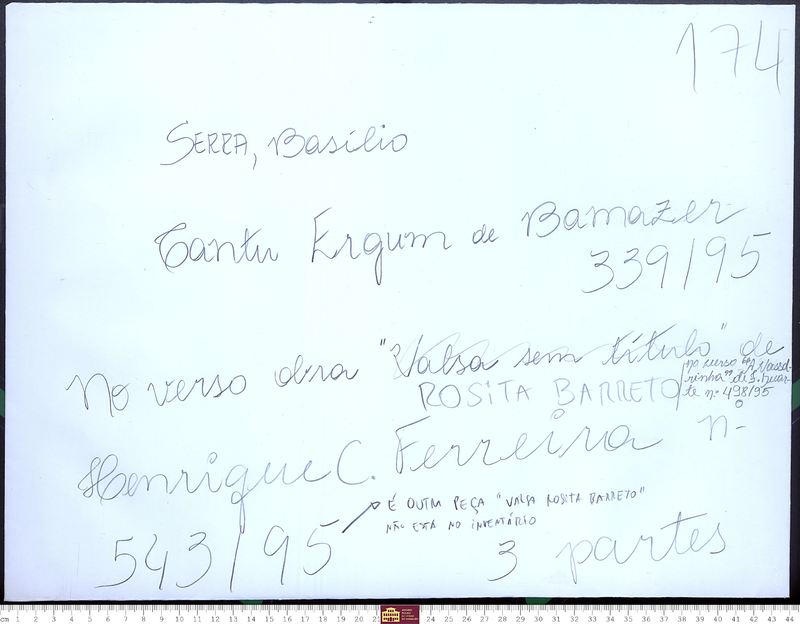 174
SERRA, Basílio
Tantu Ergum de Bamazer
339/95
No verso obra "Valsa sem título" de
ROSITA BARRETO
no verso "A Vassourinha" de S. Duarte nº 498/95
Henrique C. Ferreira nº
543/95
É OUTRA PEÇA "VALSA ROSITA BARRETO"
NÃO ESTÁ NO INVENTÁRIO
3 partes
cm 1 2 3 4 5 6 7 8 9 10 11 12 13 14 15 16 17 18 19 20 21 24 25 26 27 28 29 30 31 32 33 34 35 36 37 38 39 40 41 42 43 44